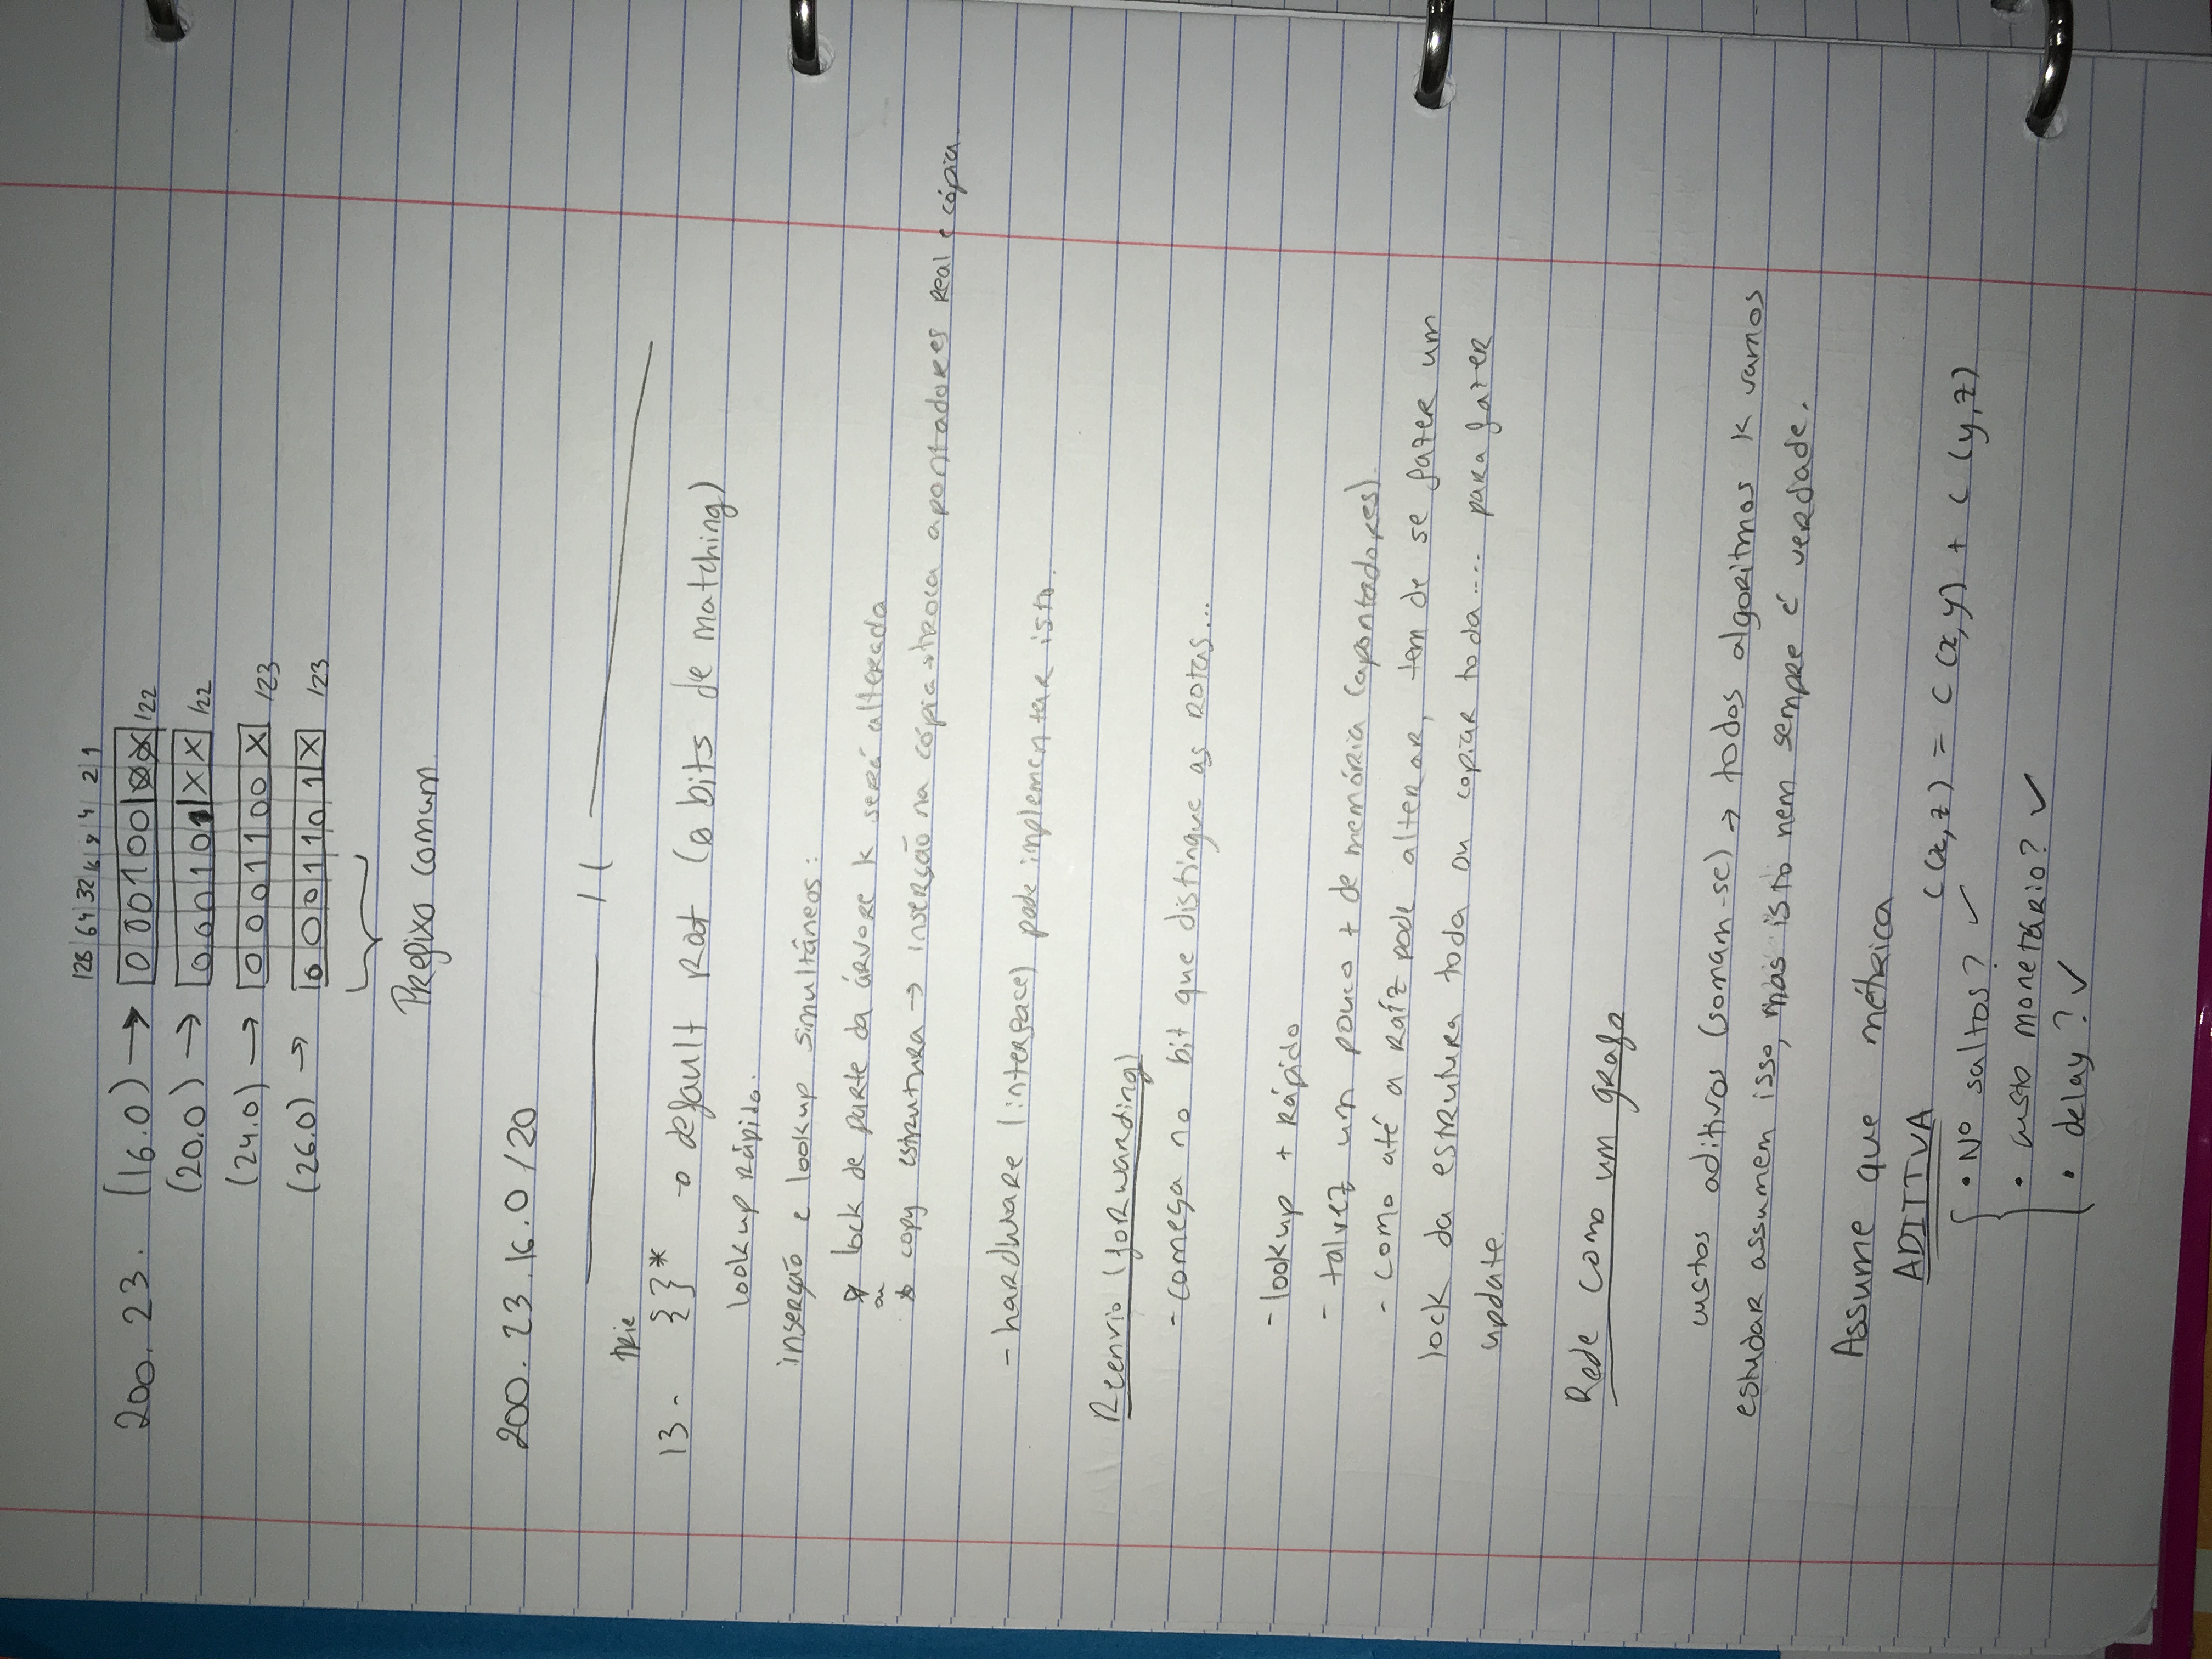 128 64 32 16 8 4 2 1
200. 23. (16.0) → 000100XX /22
(20.0) → 000101XX /22
(24.0) → 0001100X /23
(26.0) → 0001101X /23
Prefixo comum
200. 23. 16. 0 /20
trie
13 - {}* → default Root (0 bits de matching)
lookup rápido.
inserção e lookup simultâneos:
* lock de parte da árvore k será alterada
ou
* copy estrutura → inserção na cópia → troca apontadores real e cópia
- hardware (interface) pode inplementar isto.
Reenvio (forwarding)
- começa no bit que distingue as rotas...
- lookup + rápido
- talvez um pouco + de memória (apontadores).
- como até a raíz pode alterar, tem de se fazer um
lock da estrutura toda ou copiar toda.... para fazer
update.
Rede como um grafo
custos aditivos (somam-se) → todos algoritmos k vamos
estudar assumem isso, mas isto nem sempre é verdade.
Assume que métrica
ADITIVA
c(x,z) = c(x,y) + c(y,z)
• Nº saltos? ✓
• custo monetário? ✓
• delay? ✓